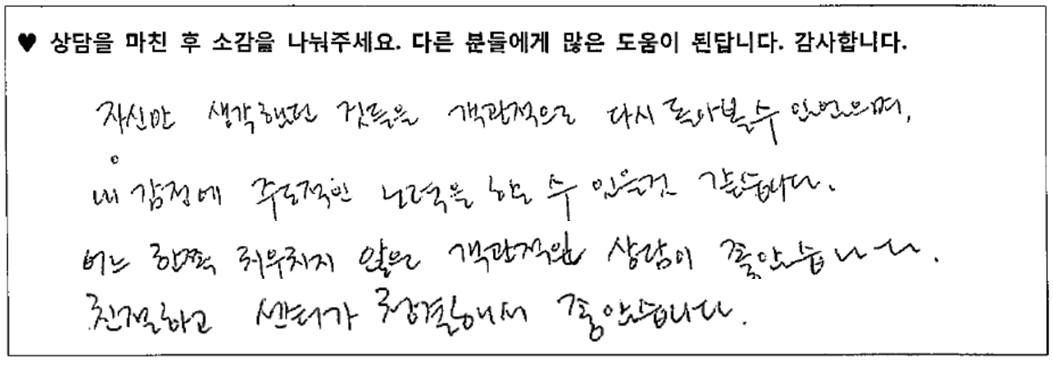 ♥ 상담을 마친 후 소감을 나눠주세요. 다른 분들에게 많은 도움이 된답니다. 감사합니다.
자신만 생각했던 것들을 객관적으로 다시 돌아볼 수 있었으며,
내 감정에 주도적인 노력을 할 수 있을것 같습니다.
어느 한쪽 치우치지 않은 객관적인 상담이 좋았습니다.
친절하고 센터가 청결해서 좋았습니다.